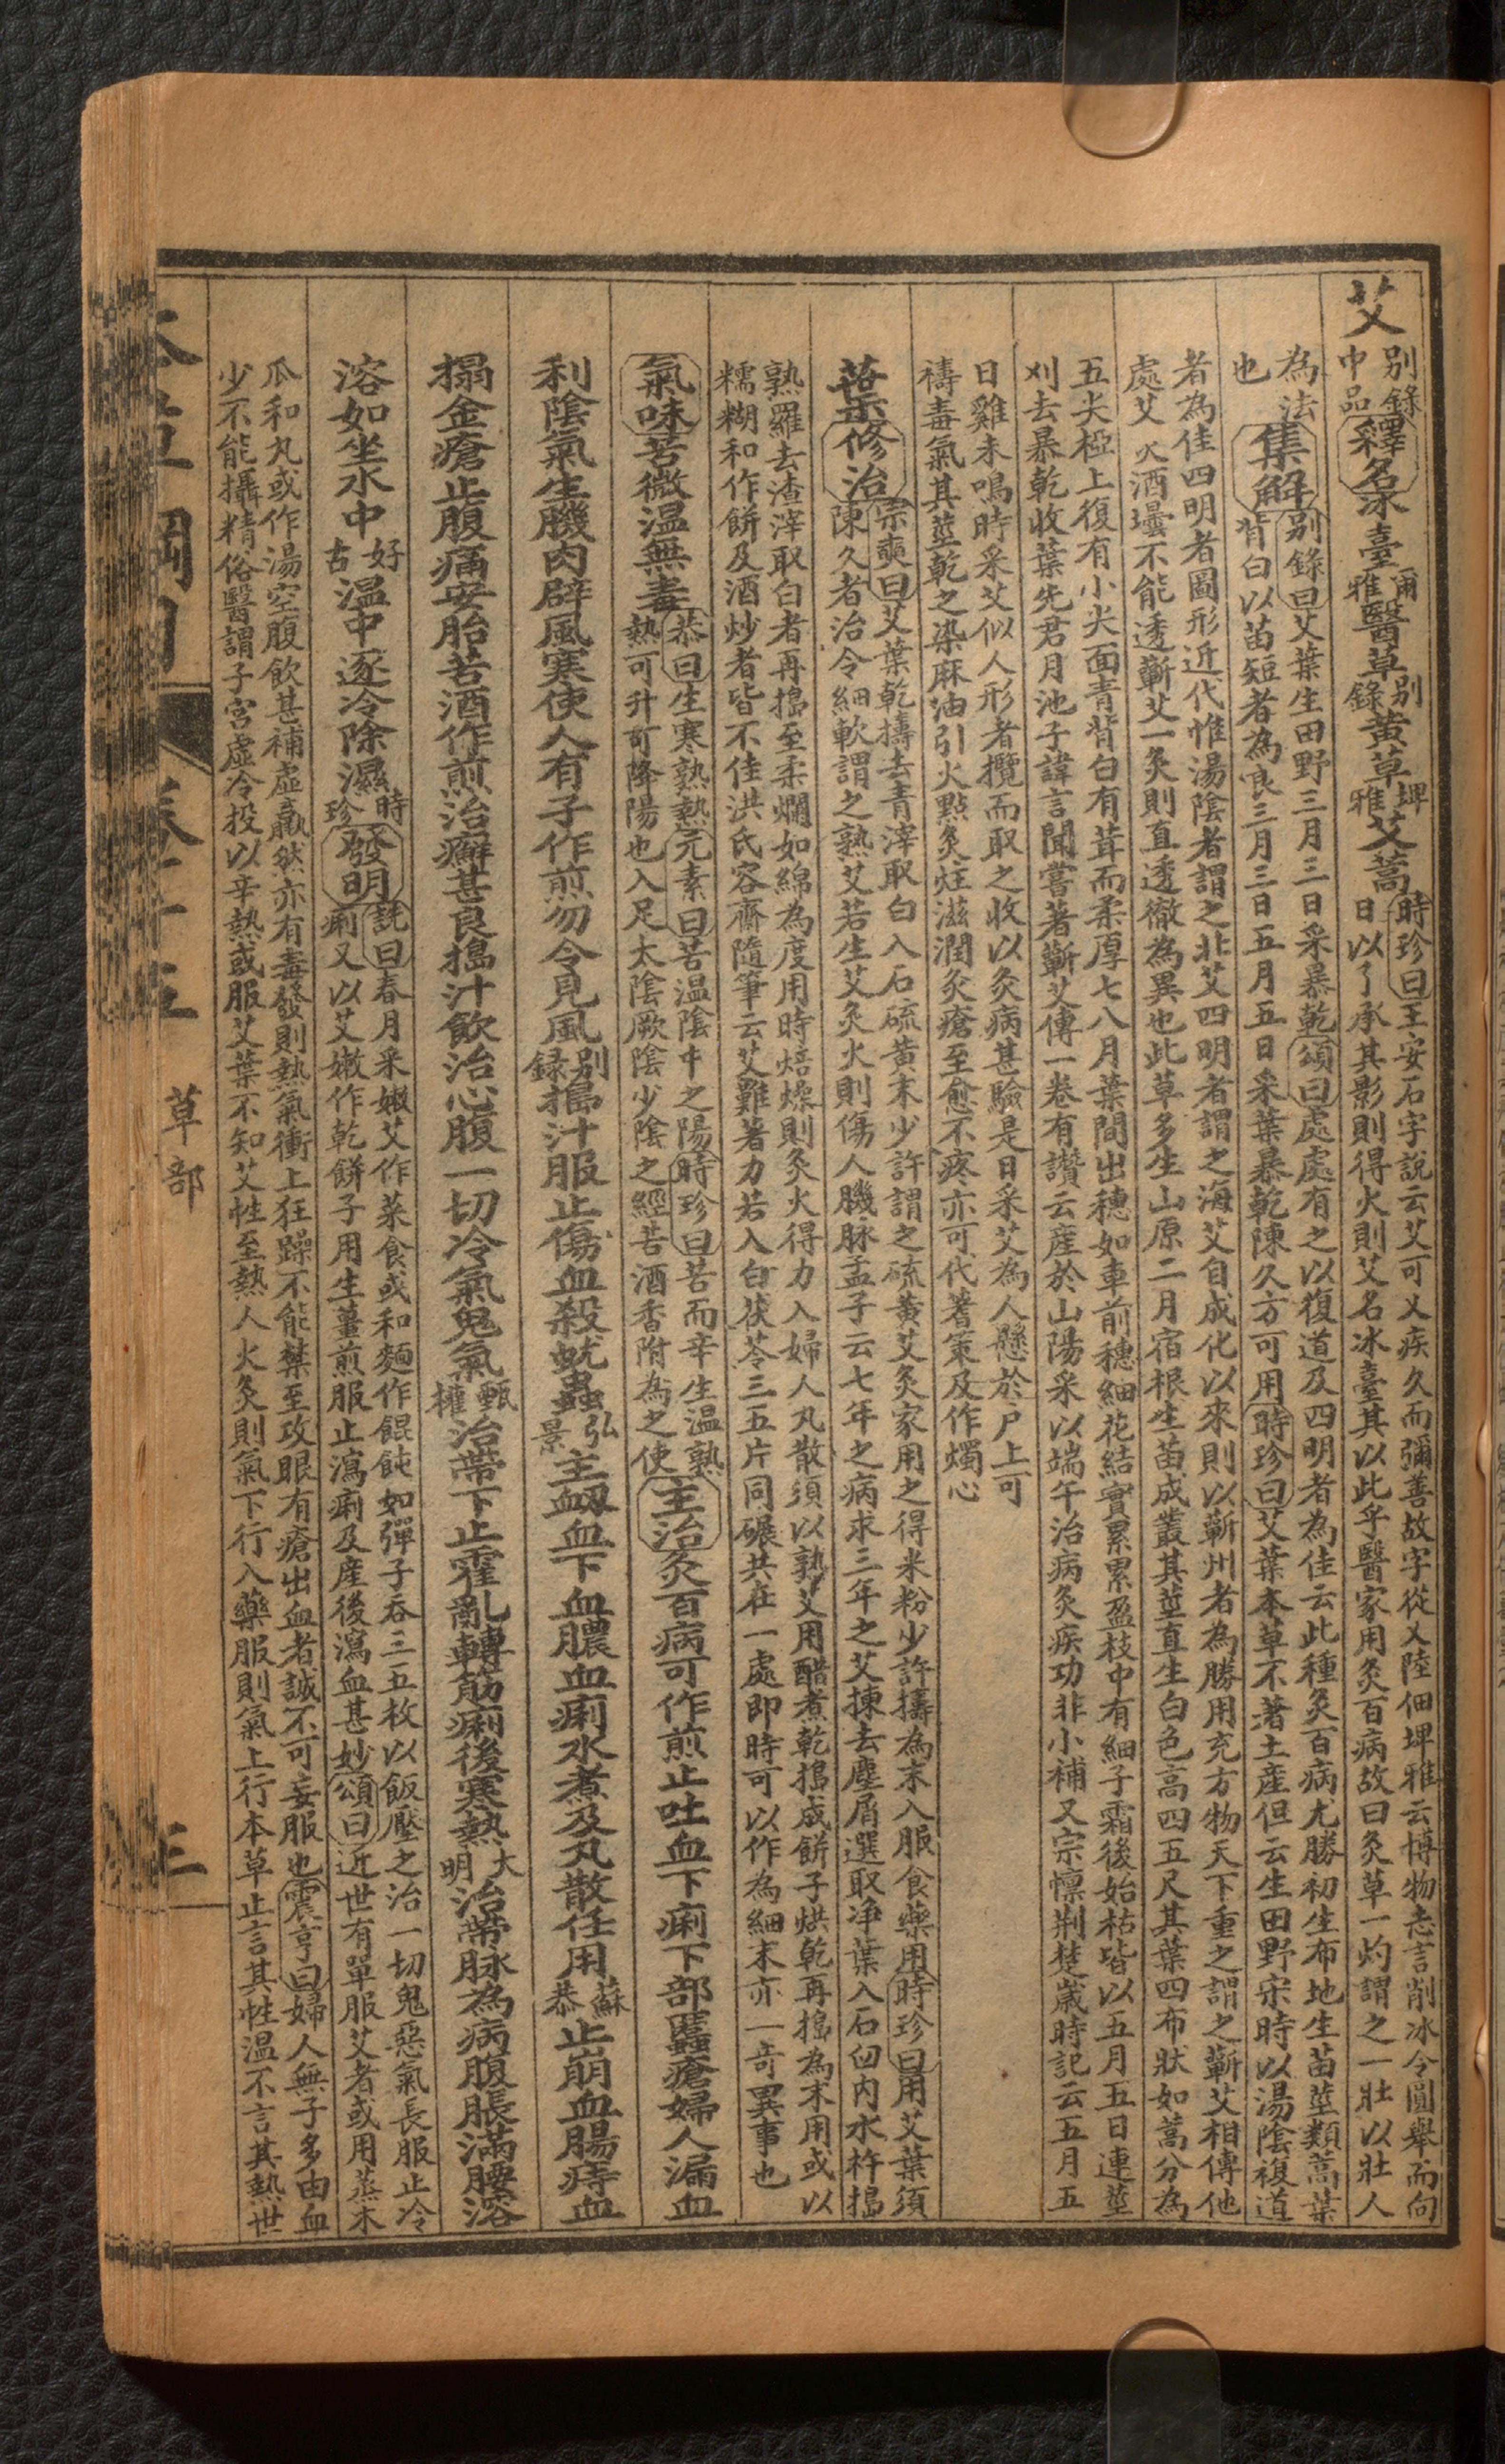 艾別錄中品釋名冰臺爾雅醫草別錄黃草埤雅艾蒿時珍曰王安石字說云艾可乂疾久而彌善故字從乂陸佃埤雅云博物志言削冰令圓舉而向
日以艾承其影則得火則艾名冰臺其以此乎醫家用灸百病故曰灸草一灼謂之一壯以壯人
為法也集解別錄曰艾葉生田野三月三日采暴乾頌曰處處有之以復道及四明者為佳云此種灸百病尤勝初生布地生苗莖類蒿葉
背白以苗短者為良三月三日五月五日采葉暴乾陳久方可用時珍曰艾葉本草不著土產但云生田野宋時以湯陰複道
者為佳四明者圖形近代惟湯陰者謂之北艾四明者謂之海艾自成化以來則以蘄州者為勝用充方物天下重之謂之蘄艾相傳他
處艾火酒壜不能透蘄艾一灸則直透徹為異也此草多生山原二月宿根生苗成叢其莖直生白色高四五尺其葉四布狀如蒿分為
五尖椏上復有小尖面青背白有茸而柔厚七八月葉間出穗如車前穗細花結實累累盈枝中有細子霜後始枯皆以五月五日連莖
刈去暴乾收葉先君月池子諱言聞嘗著蘄艾傳一卷有讚云產於山陽采以端午治病灸疾功非小補又宗懍荆楚歲時記云五月五
日雞未鳴時采艾似人形者攬而取之收以灸病甚驗是日采艾為人懸於戶上可
禱毒氣其莖乾之染麻油引火點灸炷滋潤灸瘡至愈不疼亦可代蓍策及作燭心
葉修治宗奭曰艾葉乾擣去青滓取白入石硫黃末少許謂之硫黃艾灸家用之得米粉少許擣為末入服食藥用時珍曰用艾葉須
陳久者治令細軟謂之熟艾若生艾灸火則傷人肌脉孟子云七年之病求三年之艾揀去塵屑選取凈葉入石臼內水杵搗
熟羅去渣滓取白者再搗至柔爛如綿為度用時焙燥則灸火得力入婦人丸散須以熟艾用醋煮乾搗成餅子烘乾再搗為末用或以
糯糊和作餅及酒炒者皆不佳洪氏容齋隨筆云艾難著力若入白茯苓三五片同碾共在一處即時可以作為細末亦一奇異事也
氣味苦微溫無毒恭曰生寒熟熱元素曰苦溫陰中之陽時珍曰苦而辛生溫熟
熱可升可降陽也入足太陰厥陰少陰之經苦酒香附為之使主治灸百病可作煎止吐血下痢下部䘌瘡婦人漏血
利陰氣生肌肉辟風寒使人有子作煎勿令見風別錄搗汁服止傷血殺蚘蟲弘景主衂血下血膿血痢水煮及丸散任用蘇恭止崩血腸痔血
搨金瘡止腹痛安胎苦酒作煎治癬甚良搗汁飲治心腹一切冷氣鬼氣甄權治帶下止霍亂轉筋痢後寒熱大明治帶脉為病腹脹滿腰溶
溶如坐水中好古溫中逐冷除濕時珍發明詵曰春月采嫩艾作菜食或和麵作餛飩如彈子吞三五枚以飯壓之治一切鬼惡氣長服止冷
痢又以艾嫩作乾餅子用生薑煎服止瀉痢及產後瀉血甚妙頌曰近世有單服艾者或用蒸木
瓜和丸或作湯空腹飲甚補虛羸然亦有毒發則熱氣衝上狂躁不能禁至攻眼有瘡出血者誠不可妄服也震亨曰婦人無子多由血
少不能攝精俗醫謂子宮虛冷投以辛熱或服艾葉不知艾性至熱人火灸則氣下行入藥服則氣上行本草止言其性溫不言其熱世
草部
三